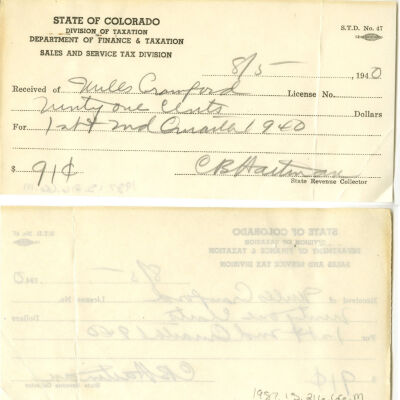 STATE OF COLORADO
DIVISION OF TAXATION
DEPARTMENT OF FINANCE & TAXATION
SALES AND SERVICE TAX DIVISION
S.T.D. No. 47
8/5 , 1940
Received of Mills Crawford License No.
Ninty one Cents Dollars
For 1st & 2nd Quarter 1940
$ 91¢ CB Hartman
State Revenue Collector